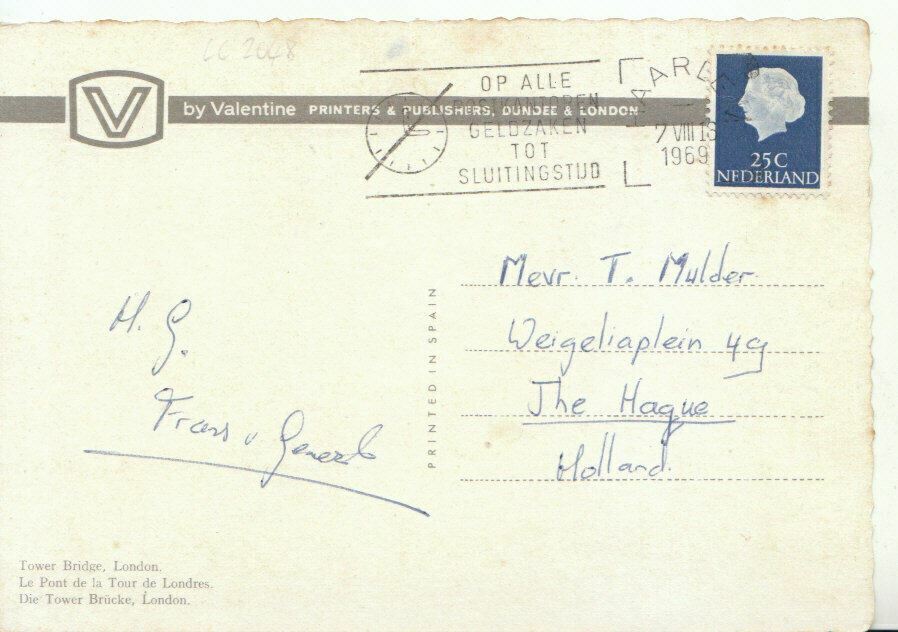 CC 2048
V
by Valentine PRINTERS & PUBLISHERS, DUNDEE & LONDON
OP ALLE
POSTKANTOREN
GELDZAKEN
TOT
SLUITINGSTIJD
HAARLEM
7 VIII 1969
25C
NEDERLAND
H. G.
Frans v
PRINTED IN SPAIN
Mevr. T. Mulder
Weigeliaplein 49
The Hague
Holland.
Tower Bridge, London.
Le Pont de la Tour de Londres.
Die Tower Brücke, London.